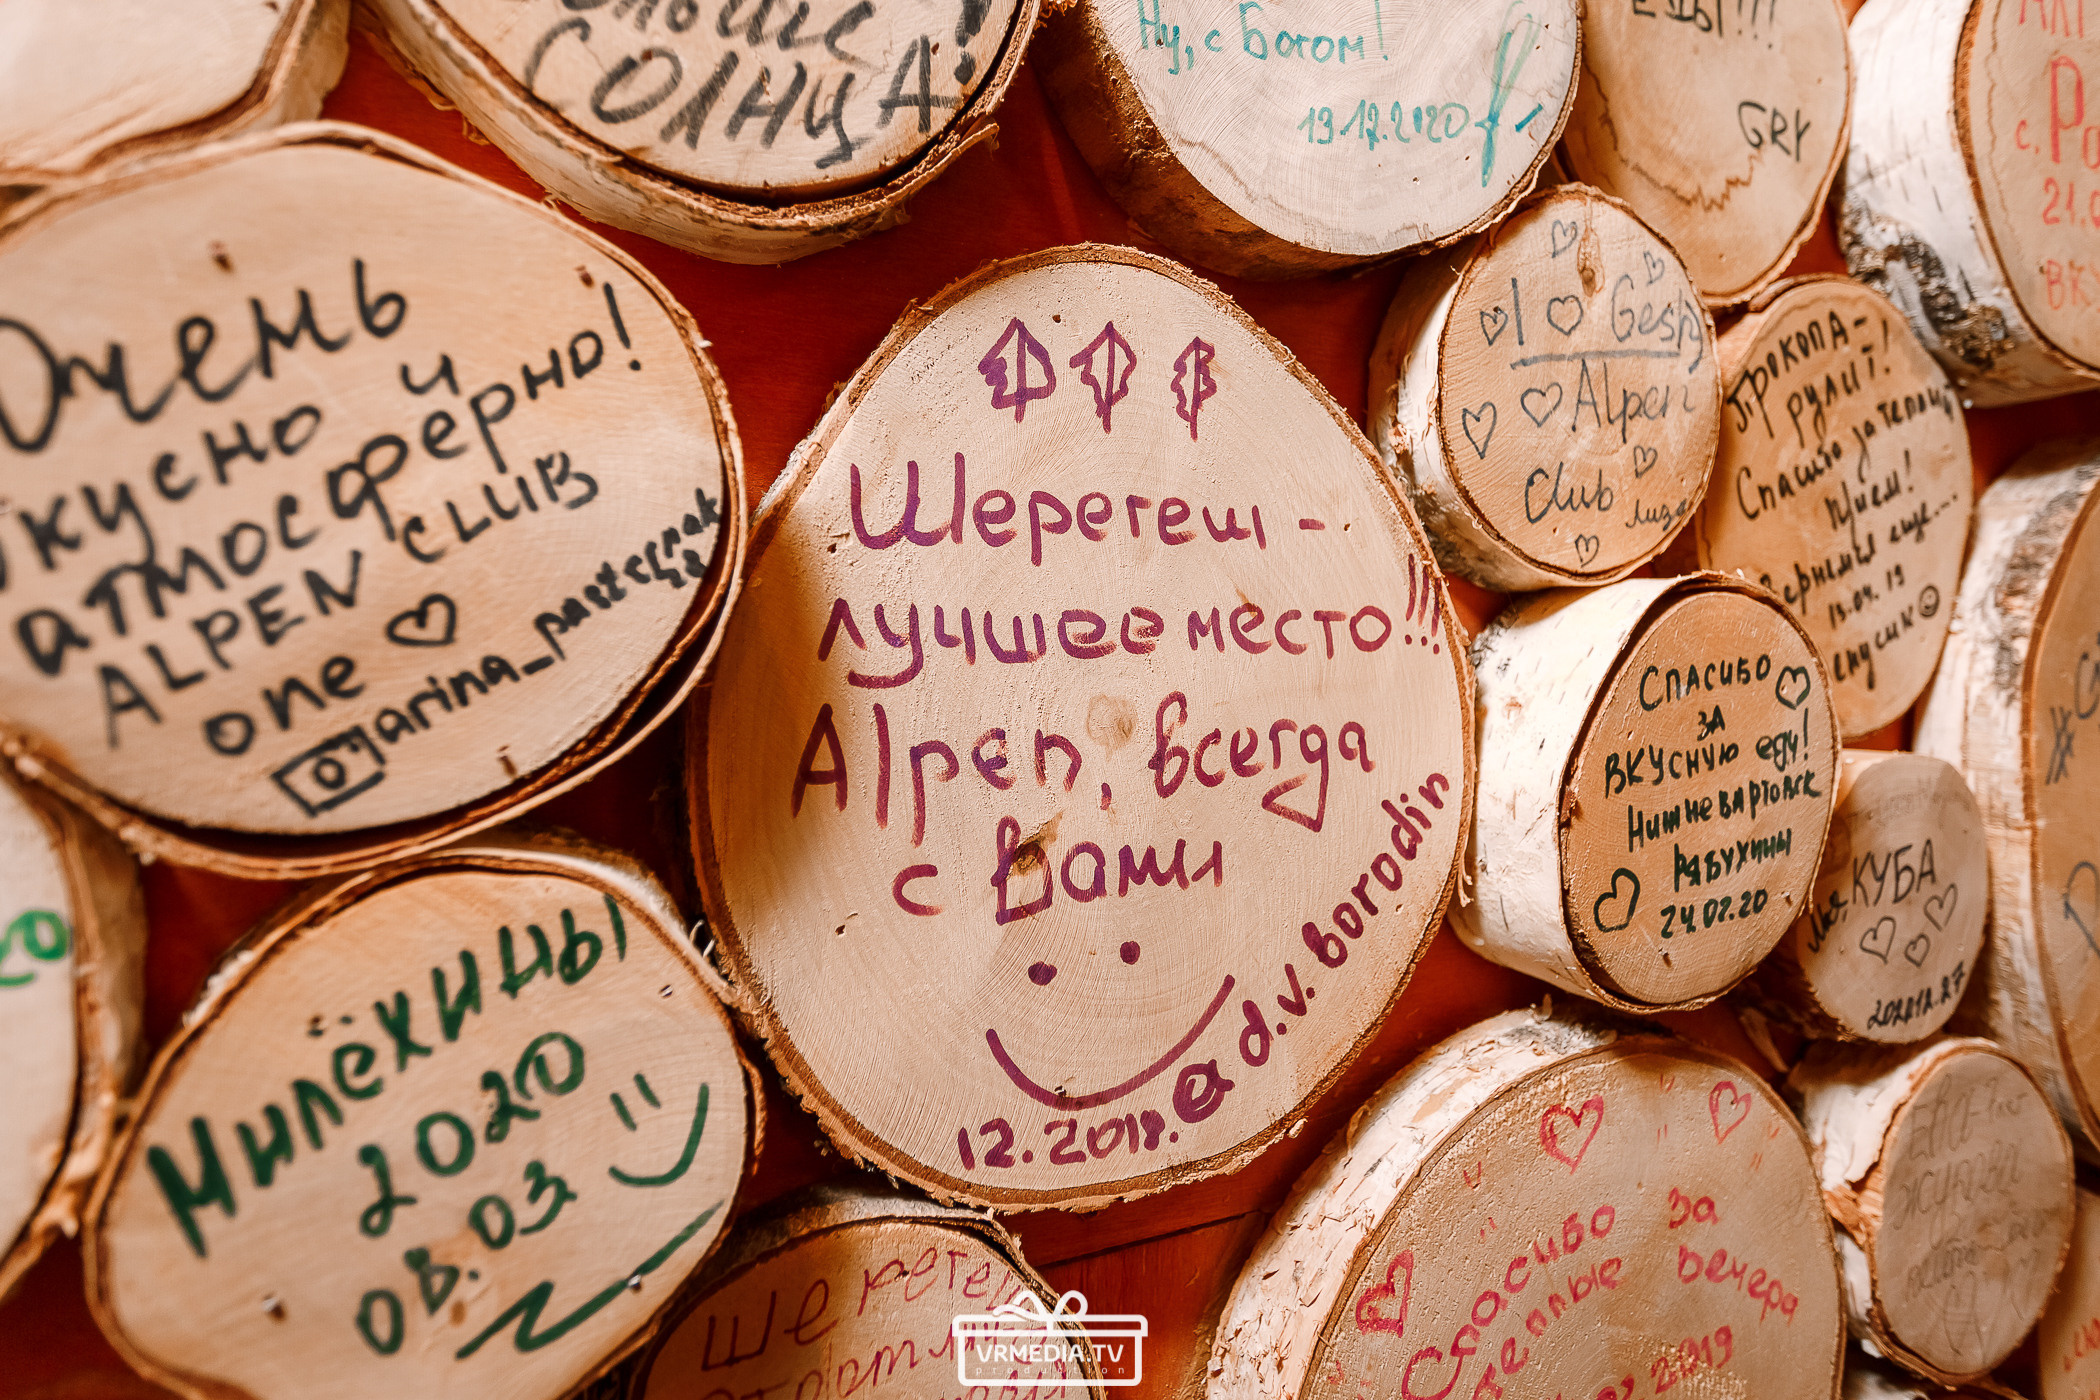 СОЛНЦА!
Ну, с Богом!
19.12.2020
ЕДЫ!!!
GRY
с.
Очень
вкусно и
атмосферно!
ALPEN CLUB
one
Шерегеш -
лучшее место!!!
Alpen, всегда
с Вами
12.2018. @d.v.borodin
I Gesh
Alpen
Club
Лиза
ПРОКОПА-
рулит!
Спасибо за теплый
приём!
Вернемся еще...
13.04.19
Спасибо
за
вкусную еду!
Нижневартовск
Рябухины
24.02.20
КУБА
Милёхины
2020
08.03
20
Шерегеш
Спасибо за
теплые вечера
2019
VRMEDIA.TV
production